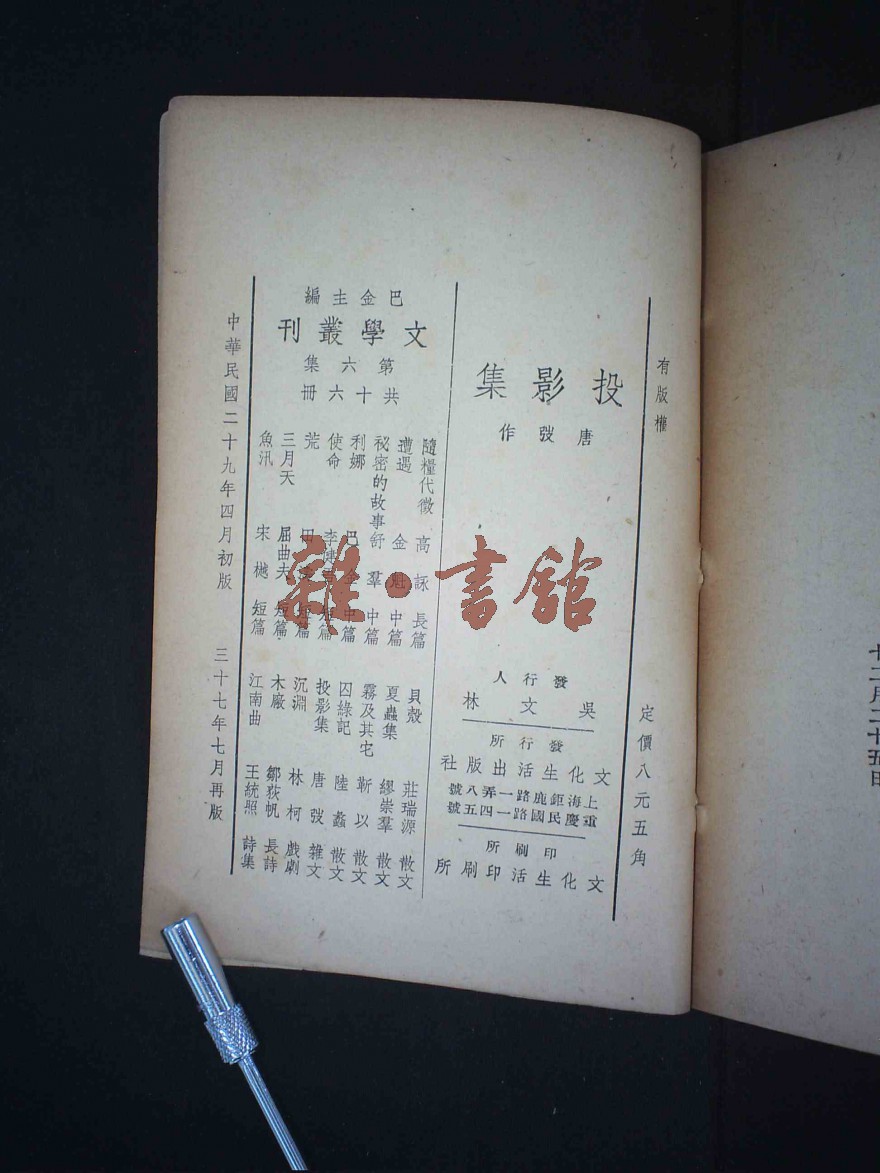 有版權
定價八元五角
投影集
唐弢作
發行人
吳文林
發行所
文化生活出版社
上海鉅鹿路一弄八號
重慶民國路一四五號
印刷所
文化生活印刷所
巴金主編
文學叢刊
第六集
共十六冊
隨糧代徵 高詠 長篇
遭遇 金魁 中篇
祕密的故事 舒羣 中篇
利娜 巴金 中篇
使命 李健吾 短篇
荒 田濤 短篇
三月天 屈曲夫 短篇
魚汛 宋樾 短篇
貝殼 莊瑞源 散文
夏蟲集 繆崇羣 散文
霧及其它 靳以 散文
囚綠記 陸蠡 散文
投影集 唐弢 雜文
沉淵 林柯 戲劇
木廠 鄒荻帆 長詩
江南曲 王統照 詩集
中華民國二十九年四月初版
三十七年七月再版
雜·書館
十二月二十五日